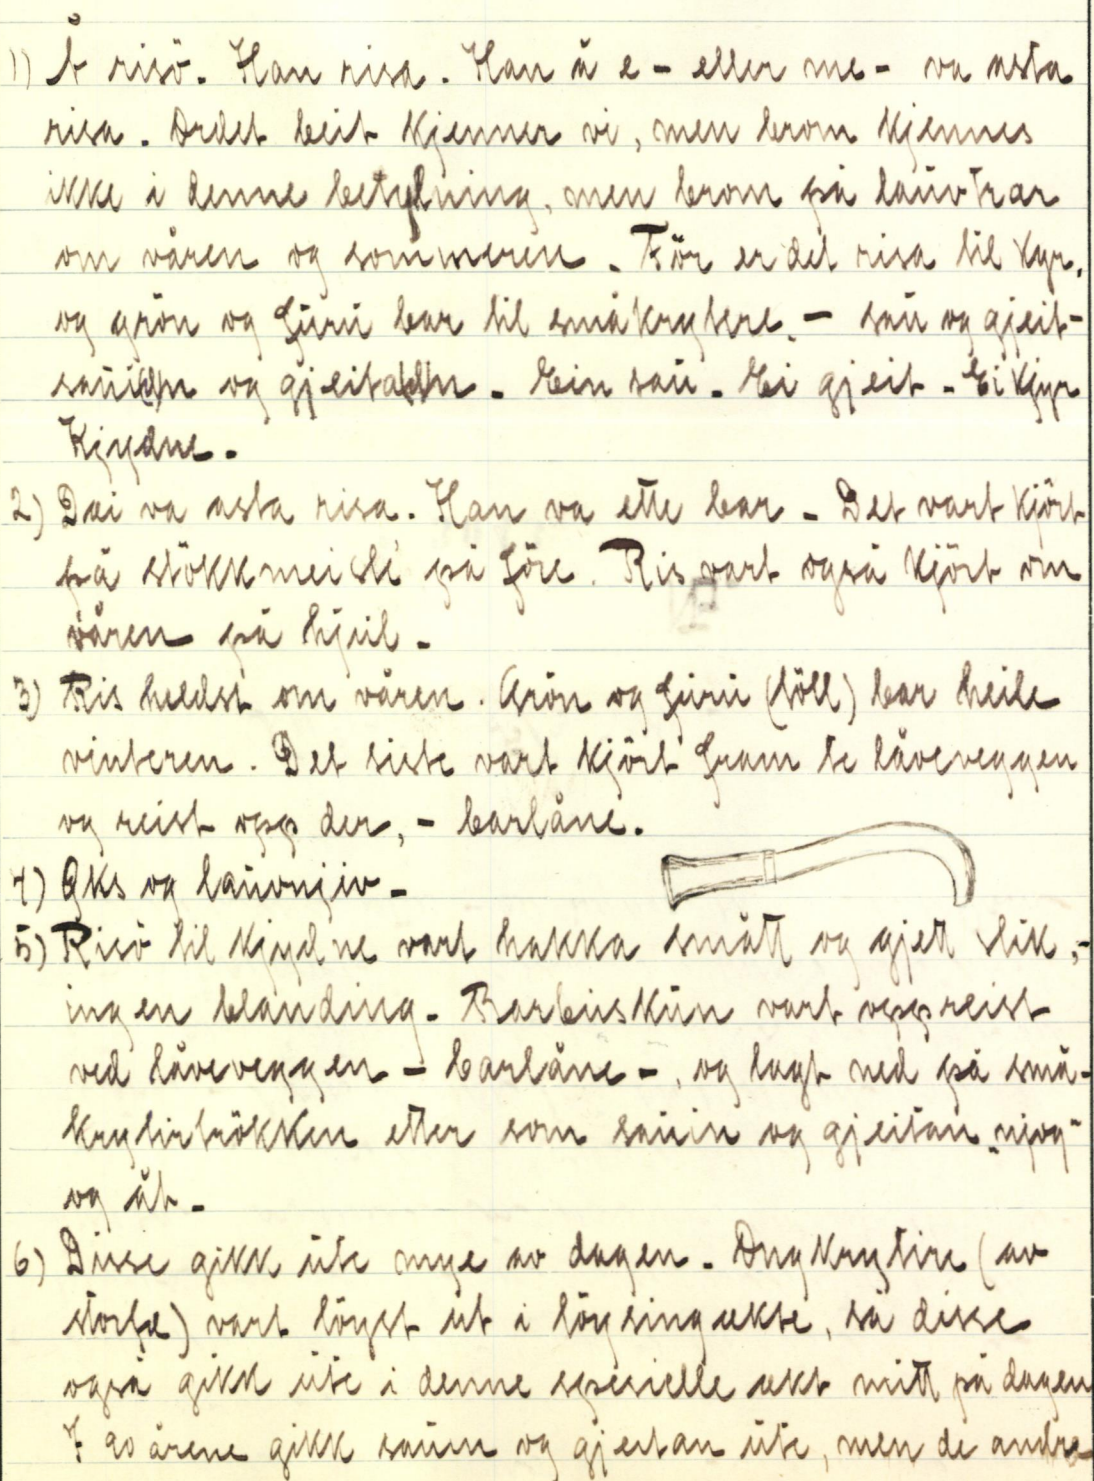 1) Å risö. Han risa. Han å e - eller me - va asta
risa. Ordet beit kjenner vi, men brom kjennes
ikke i denne betydning, men brom på lauvtrær
om våren og sommeren. Før er det risa til kyr,
og grön og furu bar til småkrytere. - sau og gjeit -
og gjeita. Ein sau. Ei gjeit - Ei kjyr
Kjydne.
2) Dæi va asta risa. Han va ette bar - Det vart kjört
på stökkmeiste på före. Ris vart også kjört om
våren på hjul -
3) Ris heldst om våren. Grön og furu (töll) bar heile
vinteren. Det siste vart kjört fram te låveveggen
og reist opp der, - barlåne.
4) Øks og lauvnjiv -
5) Risö til kjydne vart hakka smått og gjett slik, -
ingen blanding. Barbuskun vart oppreist
ved låveveggen - barlåne -, og lagt ned på små-
krytirtrökken etter som sauin og gjeitan „njog"
og åt. -
6) Disse gikk ute mye av dagen. Ongkrytire (av
storfe) vart löyst ut i löysingukte, så disse
også gikk ute i denne spesielle ukt mitt på dagen
I 90 årene gikk sauin og gjeitan ute, men de andre